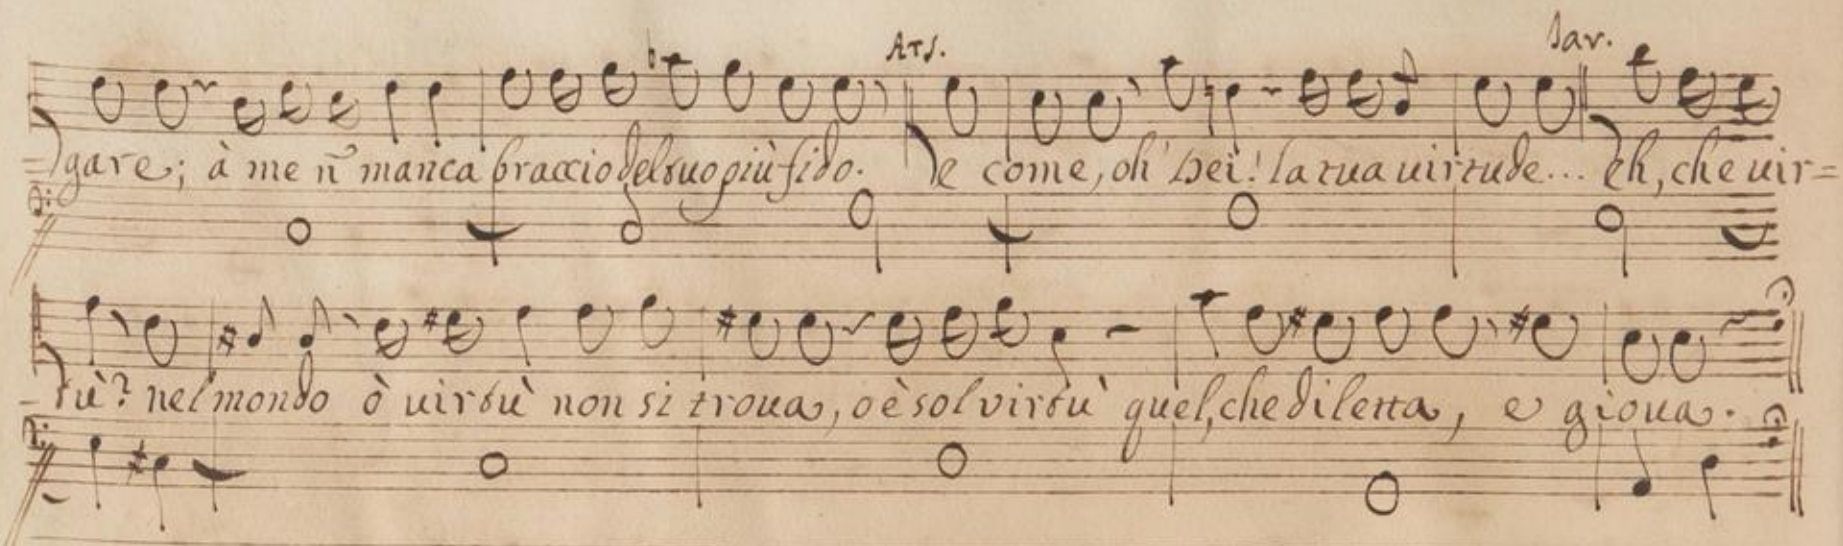 Ars. Sav.
=gare; à me ñ manca braccio del suo più fido. E come, oh' Dei! la tua uirtude... Eh, che uir=
=tù? nel mondo ò uirtù non si troua, o è sol virtù quel, che diletta, e gioua.